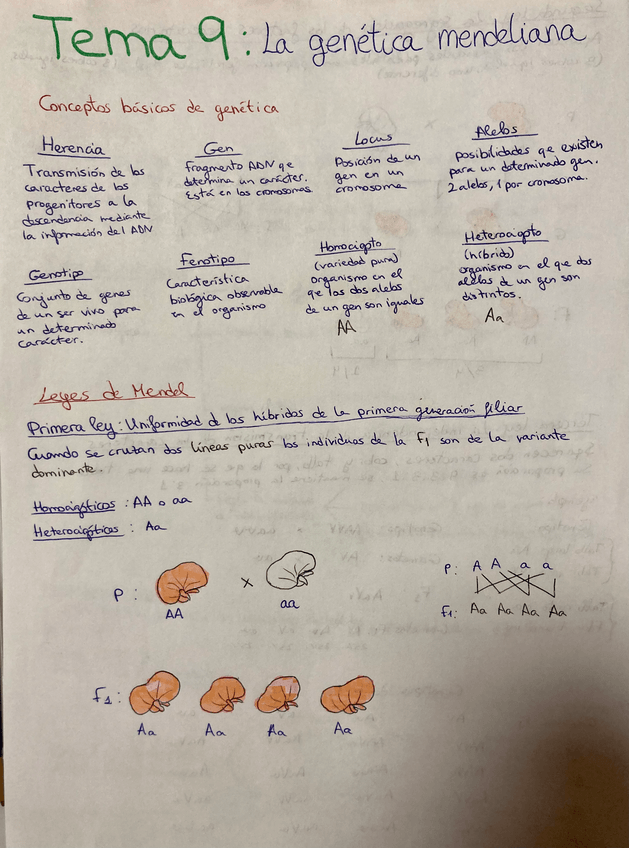 Tema 9: La genética mendeliana
Conceptos básicos de genética
Herencia
Transmisión de los
caracteres de los
progenitores a la
descendencia mediante
la información del ADN
Gen
Fragmento ADN qe
determina un carácter.
Está en los cromosomas
Locus
Posición de un
gen en un
cromosoma
Alelos
posibilidades qe existen
para un determinado gen.
2 alelos, 1 por cromosoma.
Genotipo
Conjunto de genes
de un ser vivo para
un determinado
carácter.
Fenotipo
Característica
biológica observable
en el organismo
Homocigoto
(variedad pura)
organismo en el
qe los dos alelos
de un gen son iguales
AA
Heterocigoto
(híbrido)
organismo en el qe dos
alelos de un gen son
distintos.
Aa
Leyes de Mendel
Primera ley: Uniformidad de los híbridos de la primera generación filiar
Cuando se cruzan dos líneas puras los individuos de la f1 son de la variante
dominante.
Homocigóticos: AA o aa
Heterocigóticos: Aa
P: x
AA aa
P: A A a a
f1: Aa Aa Aa Aa
f1:
Aa Aa Aa Aa